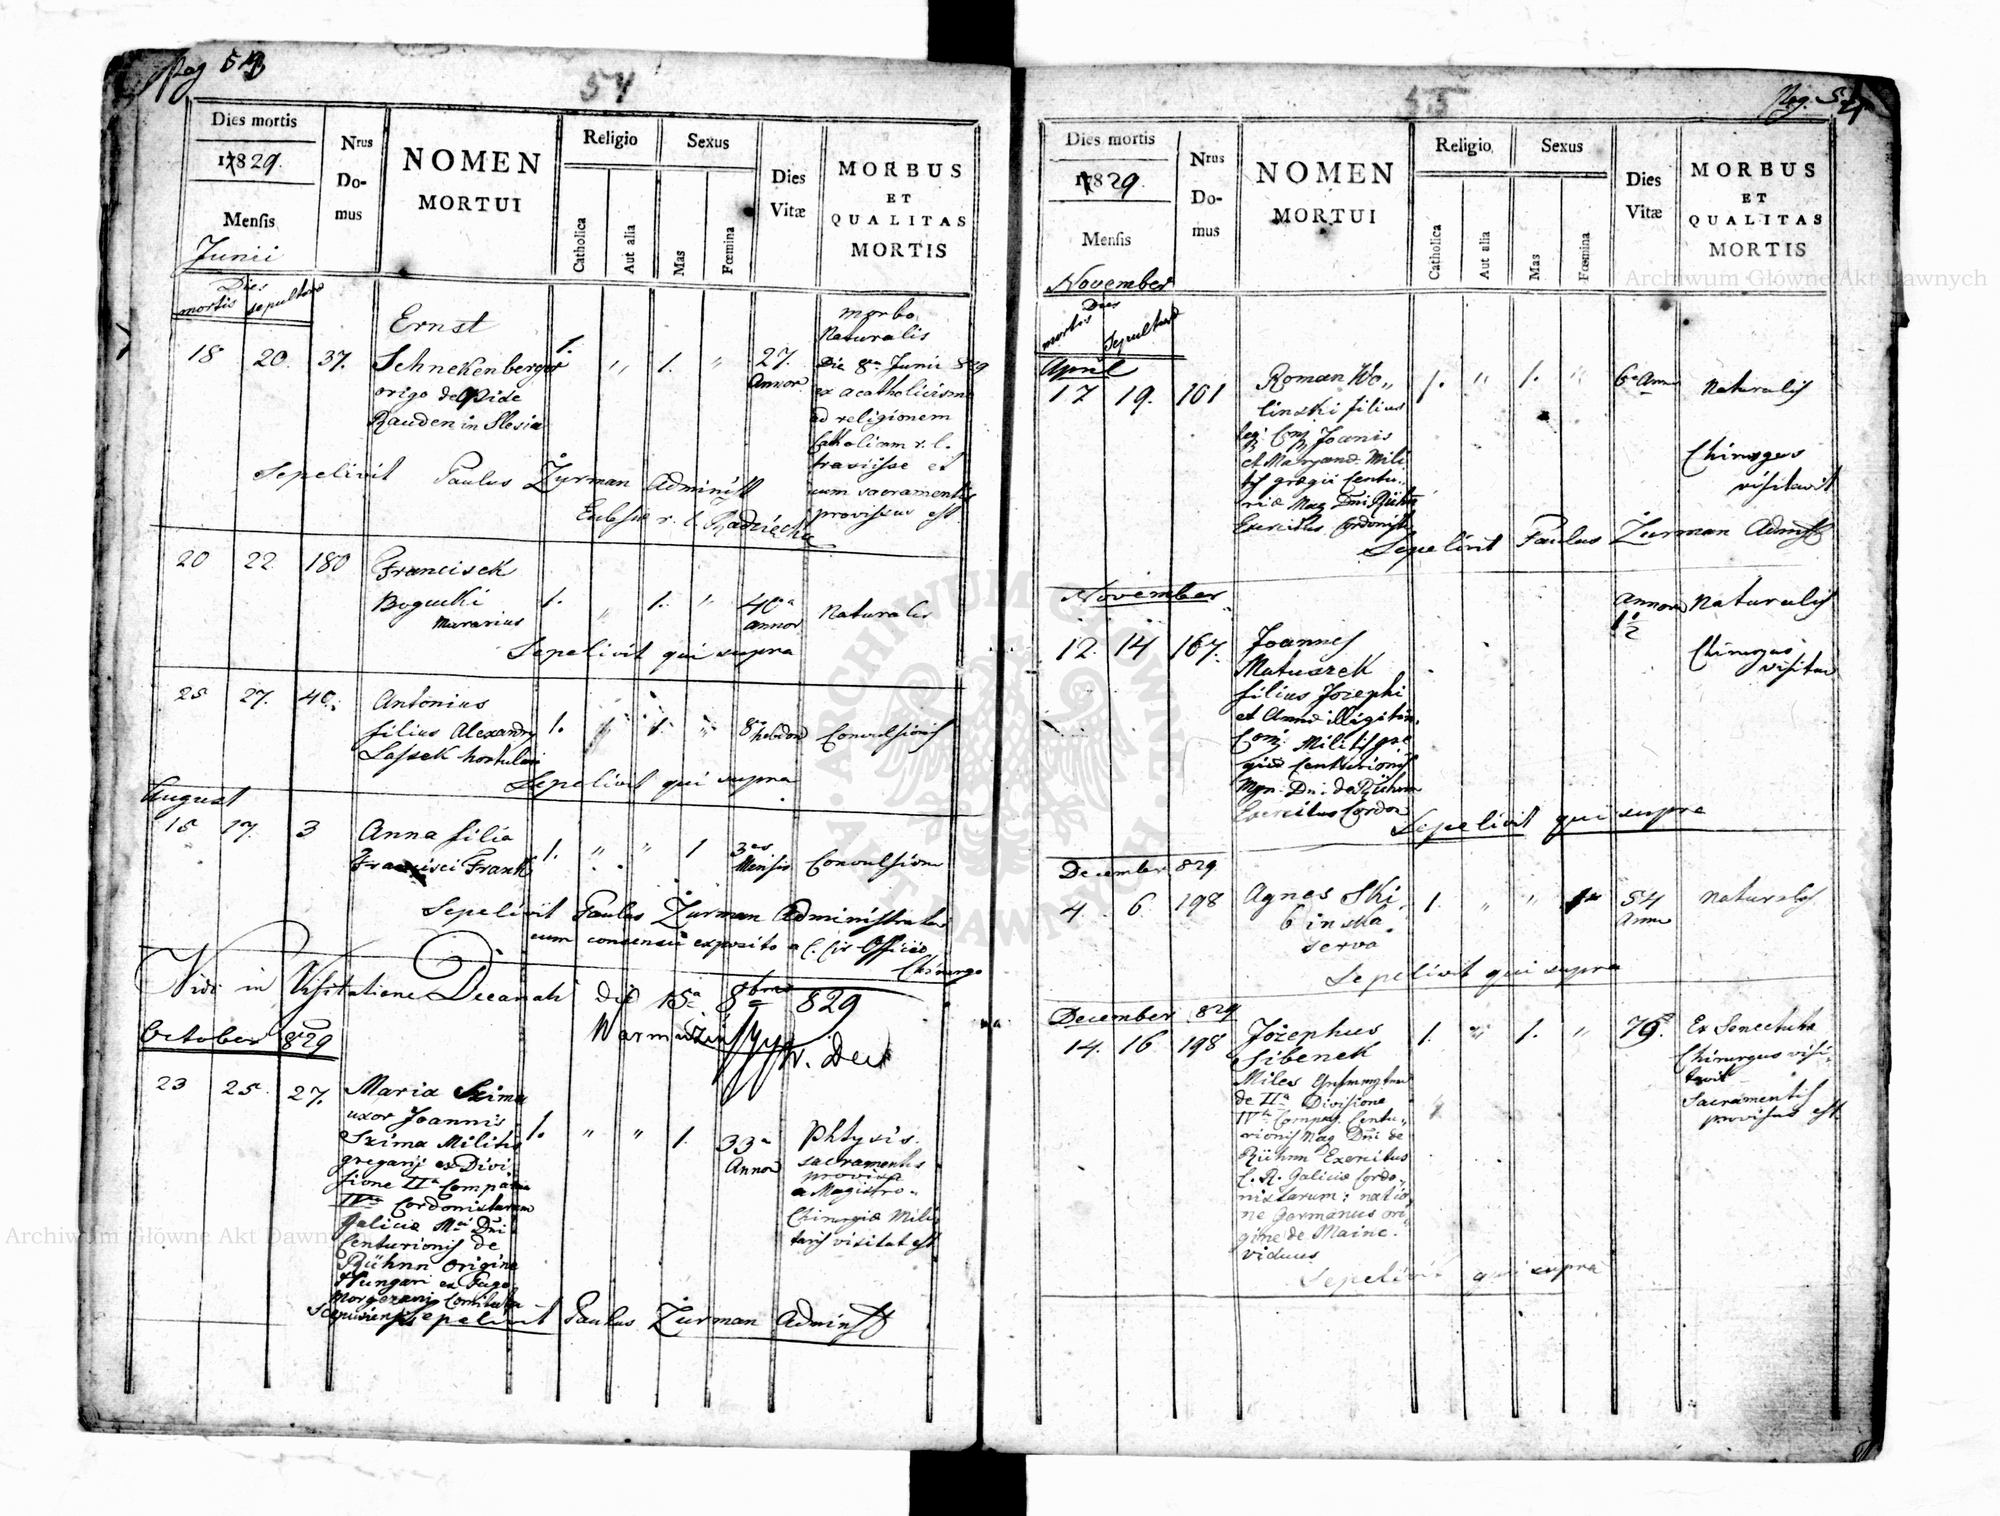 Pag 53
54
Dies mortis
1829.
Mensis
Junii
Nrus
Do-
mus
NOMEN
MORTUI
Religio
Catholica
Aut alia
Sexus
Mas
Fœmina
Dies
Vitæ
MORBUS
ET
QUALITAS
MORTIS
Dies
mortis
sepulturæ
18 20. 37.
Ernst
Schnekenberger
origo de
Rauden in Slesia
1. " 1. "
27.
Annor
morbo
Naturalis
Die 8va Junii 829
ex acatholicismo
ad religionem
Catholicam r. l.
transiisse et
cum sacramentis
provisus est
Sepelivit Paulus Żurman Administ
r. l.
20 22. 180
Francisek
Bogucki
Murarius
1. " 1. "
40a
annor
Naturalis
Sepelivit qui supra
25 27. 40.
Antonius
filius Alexandri
Lassek hortulani
1. " 1. "
8 hebdom
Convulsionis
Sepelivit qui supra
August
15 17. 3
Anna filia
Francisci Frank
1. " " 1
3es
Mensis
Convulsion
Sepelivit Paulus Żurman Administrator
cum consensu exposito a C. Cir Officio
Chirurgo
Vidi in Visitatione Decanali die 15a 8bris 829
Dec
October 829
23 25. 27.
Maria Szima
uxor Joannis
Szima Militis
gregarij ex Divi
sione IIa Compania
IVta Cordonistarum
Galiciæ Mai Dni
Centurionis de
Rühnn origine
Hungari ex Pago
Comitatu
1. " " 1.
33a
Annor
Phtysis.
sacramentis
provisa
a Magistro
Chirurgiæ Mili
taris visitat est
Sepelivit Paulus Żurman Administ
Pag. 54
55
Dies mortis
1829.
Mensis
November
Nrus
Do-
mus
NOMEN
MORTUI
Religio
Catholica
Aut alia
Sexus
Mas
Fœmina
Dies
Vitæ
MORBUS
ET
QUALITAS
MORTIS
Dies
mortis
Sepulturæ
April
17 19. 101
Roman Wo„
linski filius
leg: Conj Joanis
et Mili
tis gregii Centu„
riæ Mag Dni Rühnn
Exercitus Cordonist
1. " 1. "
6 Ann
Naturalis
Chirurgus
visitavit
Sepelivit Paulus Żurman Admist
November
12. 14 167.
Joannes
Matuszek
filius Jozephi
et Annæ illigitim.
Conj. Militis gre
giæ Centurionis
Mgn. Dni: de Rühnn
Exercitus Cordon
Annor
1 1/2
Naturalis
Chirurgus
visitav
Sepelivit qui supra
December 829
4. 6. 198
Agnes Ski
binska
serva
1. " "
54
Anno
Naturalis
Sepelivit qui supra
December 829
14. 16 198
Jozephus
Sibenek
Miles
de IIa Divisione
IVta Compag. Centu„
rionis Mag Dni de
Rühnn Exercitus
C. R. Galiciæ Cordo„
nistarum: natio
ne Germanus ori„
gine de Maine.
viduus
1. " 1. "
Ex Senectute
Chirurgus visi„
tavit
Sacramentis
provisus est.
Sepelivit qui supra
ARCHIWUM GŁÓWNE AKT DAWNYCH
Archiwum Główne Akt Dawnych
Archiwum Główne Akt Dawn